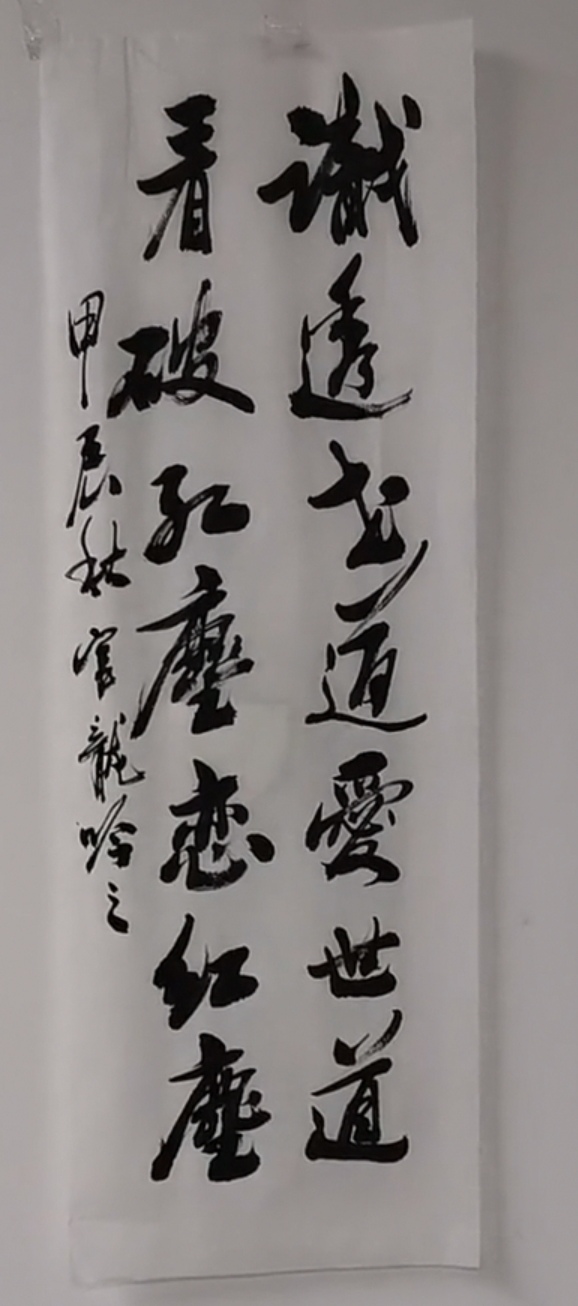 識透世道愛世道
看破紅塵戀紅塵
甲辰秋官龍吟之